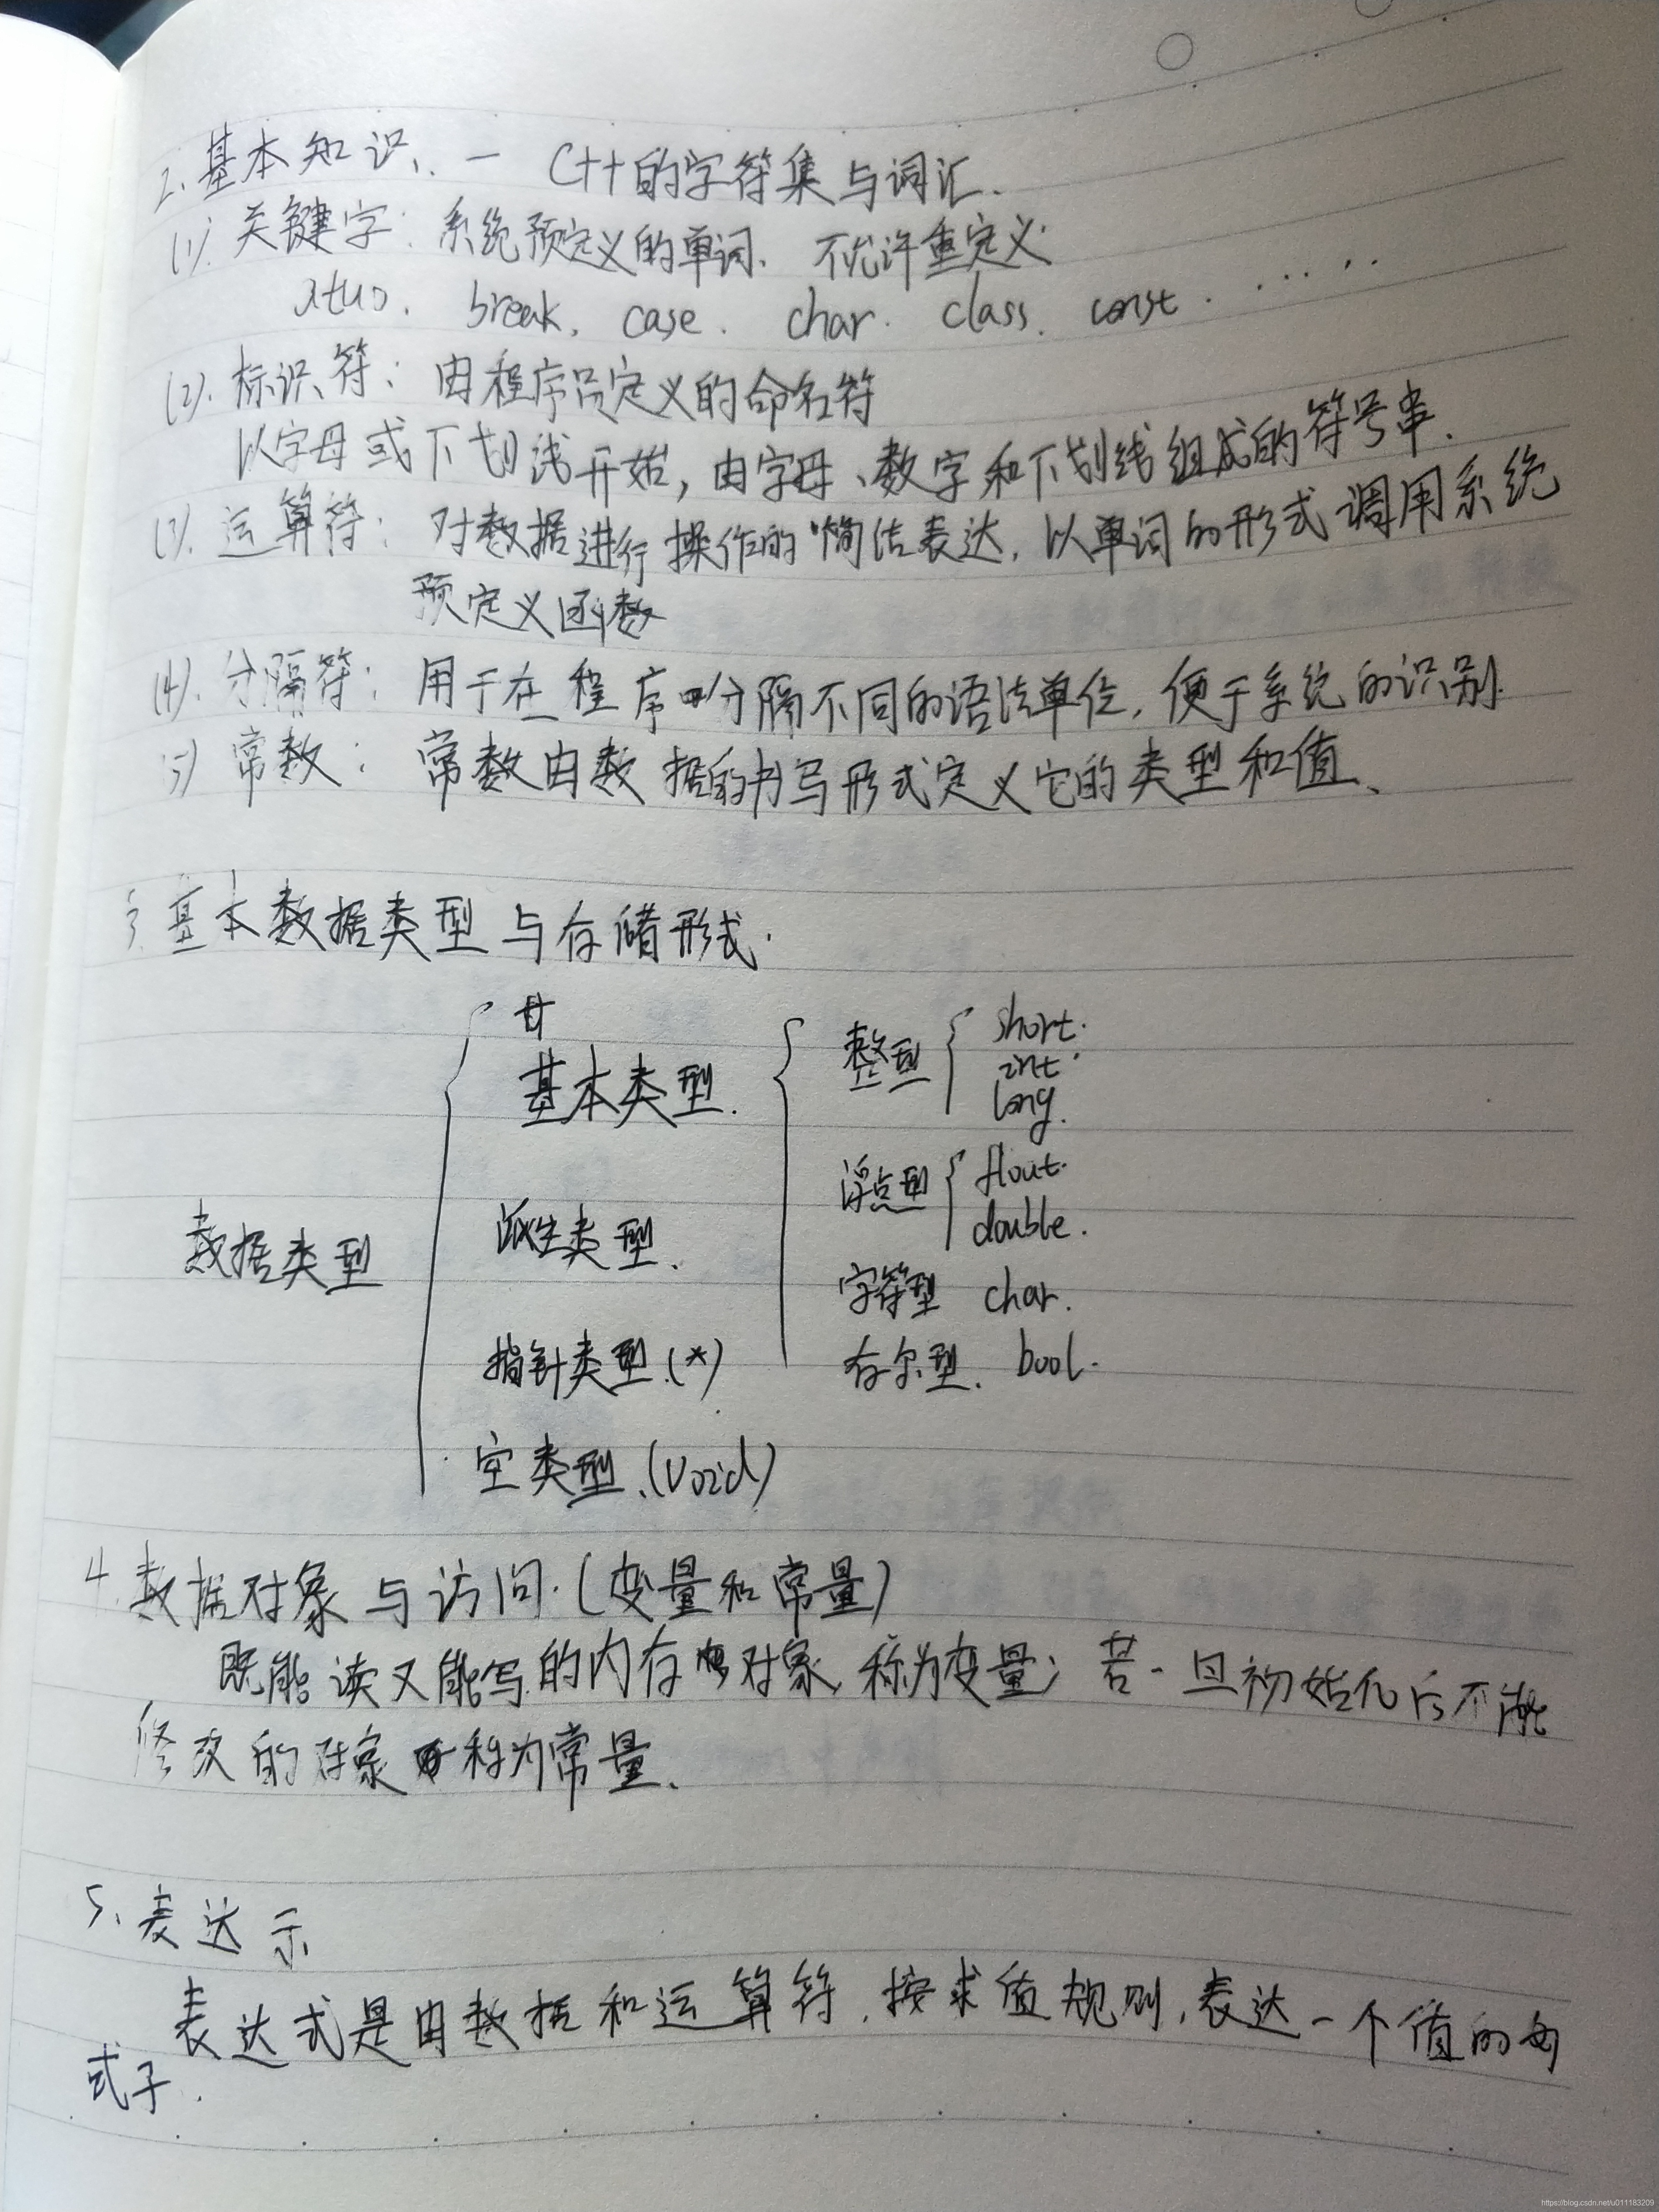 2. 基本知识、一 C++的字符集与词汇.
(1). 关键字: 系统预定义的单词、不允许重定义.
atuo. break. case. char. class. const. .....
(2). 标识符: 由程序员定义的命名符
以字母或下划线开始, 由字母、数字和下划线组成的符号串.
(3). 运算符: 对数据进行操作的简洁表达, 以单词的形式调用系统
预定义函数
(4). 分隔符: 用于在程序中分隔不同的语法单位, 便于系统的识别.
(5) 常数: 常数由数据的书写形式定义它的类型和值、
3. 基本数据类型与存储形式.
数据类型
基本类型.
整型 short. int. long.
浮点型 flout. double.
字符型 char.
布尔型、bool.
派生类型、
指针类型.(*)
空类型、(void)
4. 数据对象与访问.(变量和常量)
既能读又能写的内存对象, 称为变量; 若一旦初始化后不能
修改的对象称为常量、
5、表达示
表达式是由数据和运算符, 按求值规则, 表达一个值的
式子.
https://blog.csdn.net/u011183209